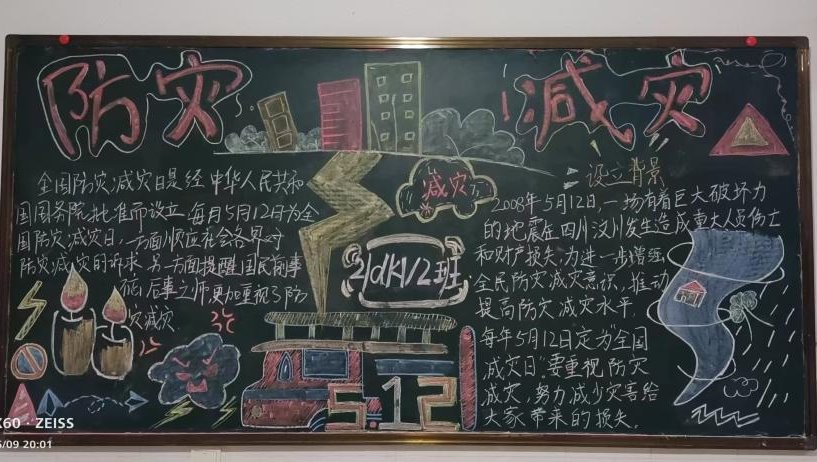 防灾
减灾
减灾
全国防灾减灾日是经中华人民共和
国国务院批准而设立,每月5月12日为全
国防灾减灾日,一方面顺应社会各界对
防灾减灾的诉求,另一方面提醒国民前事
不忘,后事之师,更加重视
灾减灾.
设立背景
2008年5月12日,一场有着巨大破坏力
的地震在四川汶川发生造成重大人员伤亡
和财产损失,为进一步增强
全民防灾减灾意识,推动
提高防灾减灾水平.
每年5月12日定为"全国
减灾日".要重视防灾
减灾,努力减少灾害给
大家带来的损失.
21dkV2班
5.12
X60 · ZEISS
5/09 20:01